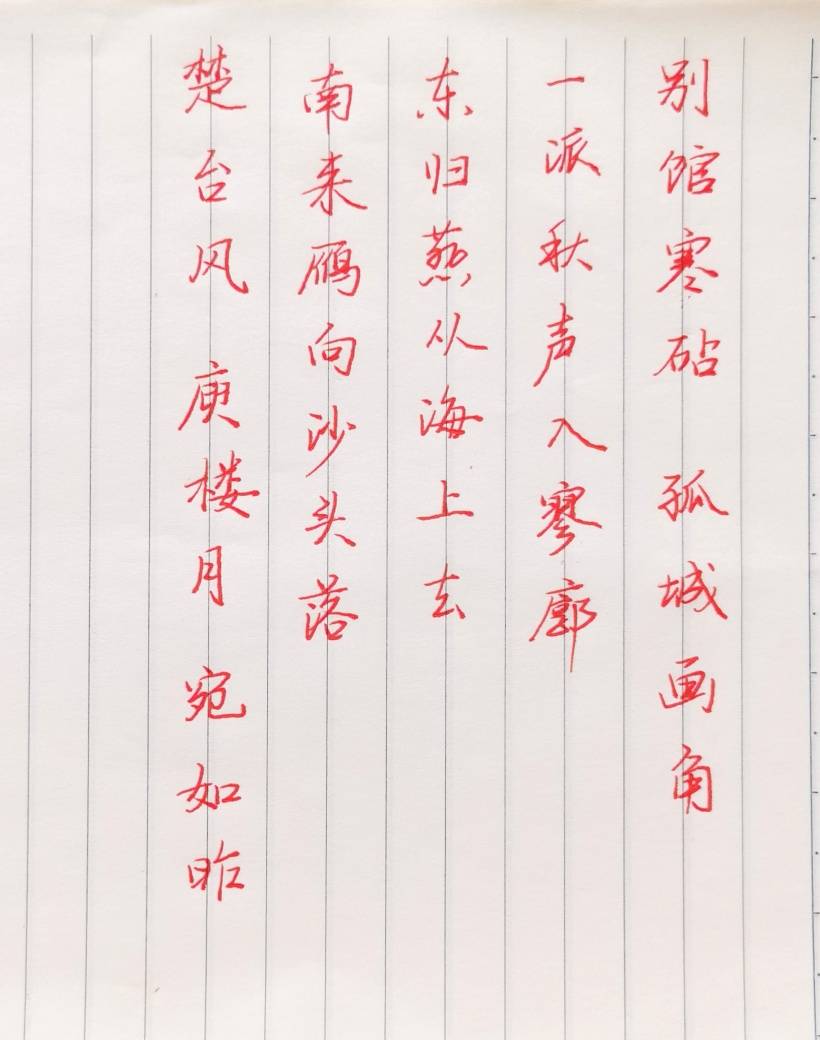 别馆寒砧 孤城画角
一派秋声入寥廓
东归燕从海上去
南来雁向沙头落
楚台风 庾楼月 宛如昨